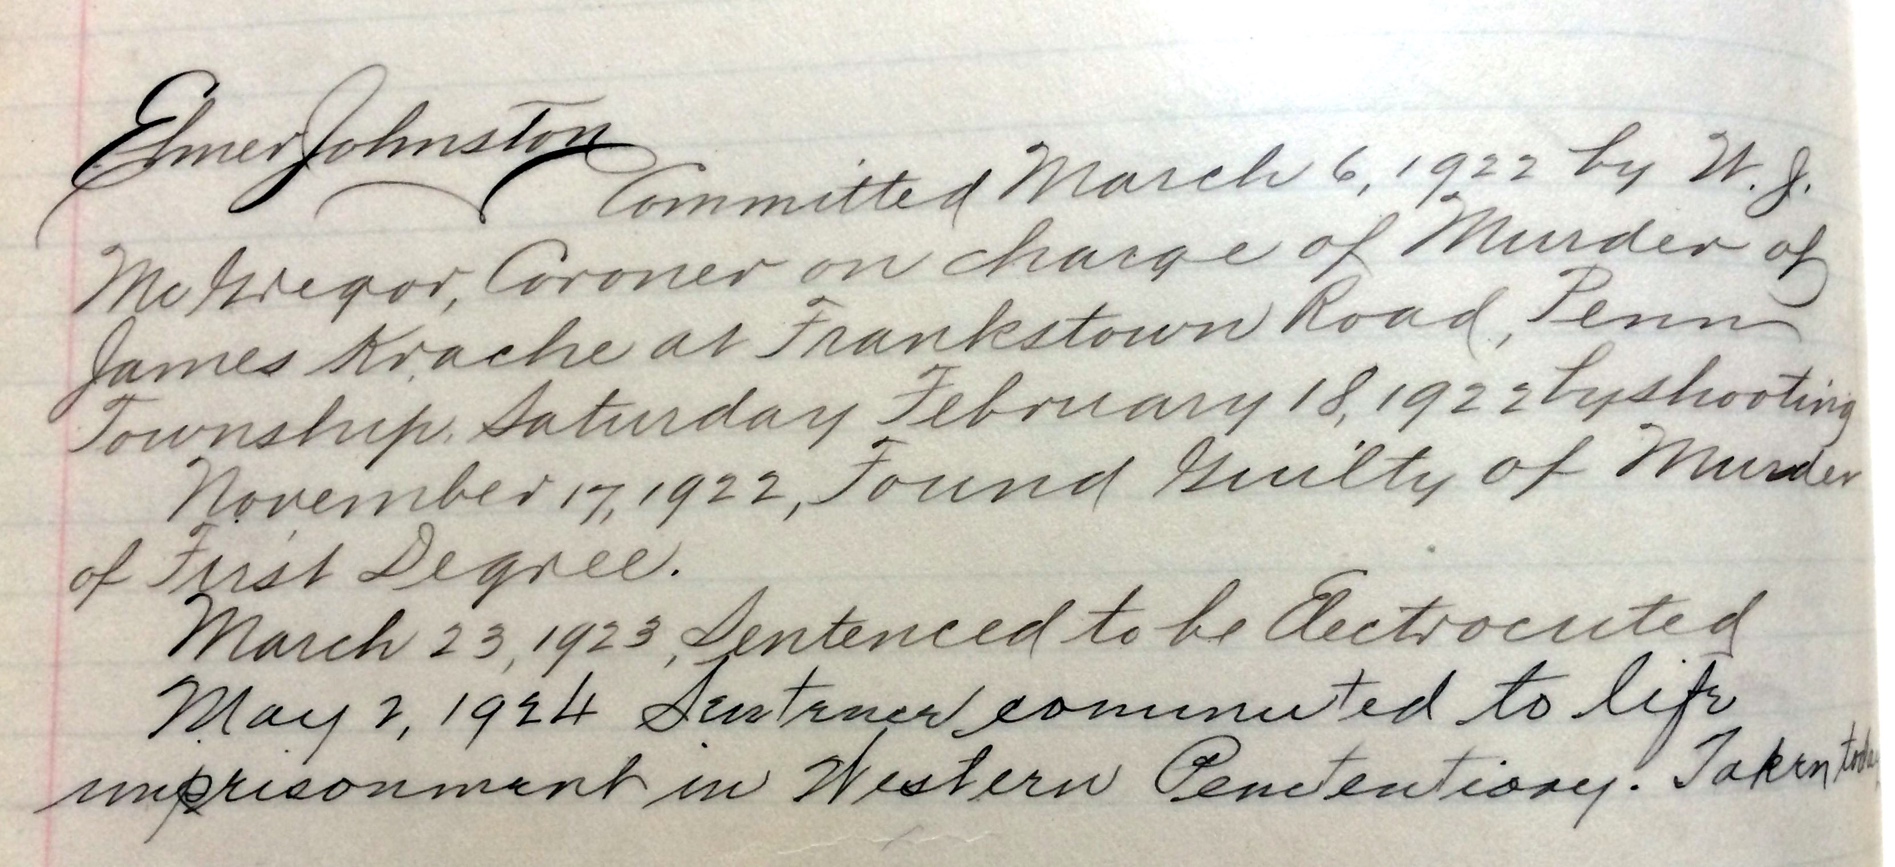 Elmer Johnston
Committed March 6, 1922 by W. J.
McGregor, Coroner on charge of Murder of
James Krache at Frankstown Road, Penn
Township. Saturday February 18, 1922 by shooting
November 17, 1922, Found Guilty of Murder
of First Degree.
March 23, 1923, Sentenced to be Electrocuted
May 2, 1924 Sentence commuted to life
imprisonment in Western Penetentiary. Taken today